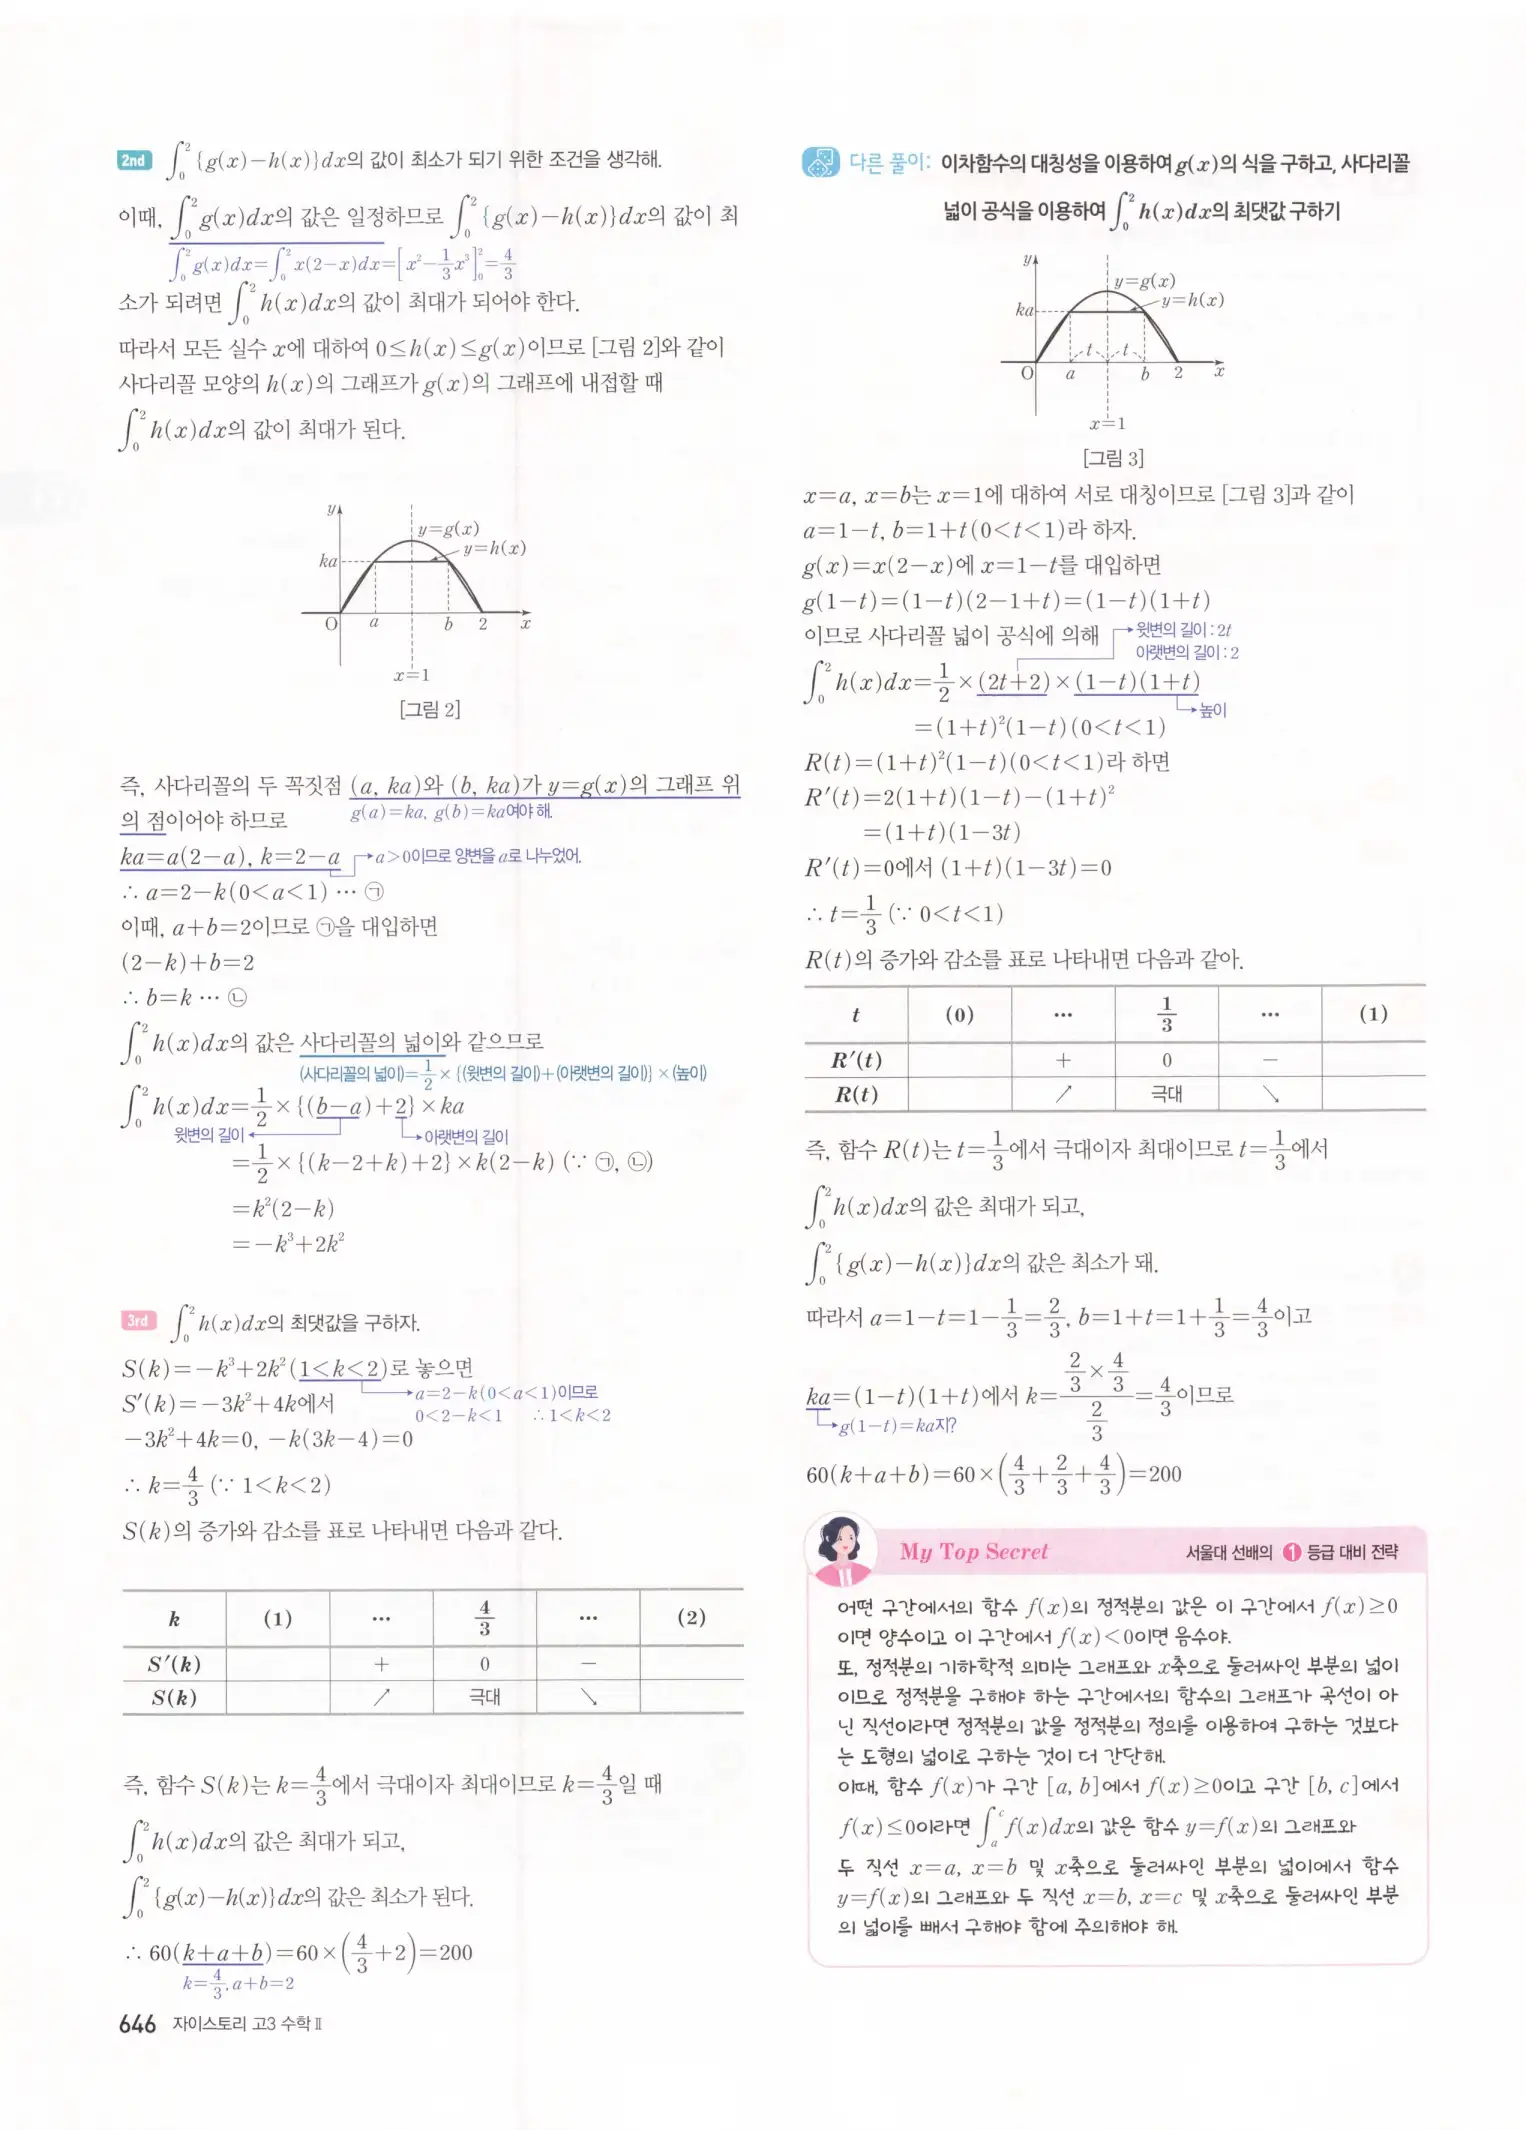 2nd ∫₀² {g(x)−h(x)}dx의 값이 최소가 되기 위한 조건을 생각해.
이때, ∫₀² g(x)dx의 값은 일정하므로 ∫₀² {g(x)−h(x)}dx의 값이 최
∫₀² g(x)dx=∫₀² x(2−x)dx=[x²−1/3x³]₀²=4/3
소가 되려면 ∫₀² h(x)dx의 값이 최대가 되어야 한다.
따라서 모든 실수 x에 대하여 0≤h(x)≤g(x)이므로 [그림 2]와 같이
사다리꼴 모양의 h(x)의 그래프가 g(x)의 그래프에 내접할 때
∫₀² h(x)dx의 값이 최대가 된다.
y
y=g(x)
y=h(x)
ka
O a b 2 x
x=1
[그림 2]
즉, 사다리꼴의 두 꼭짓점 (a, ka)와 (b, ka)가 y=g(x)의 그래프 위
g(a)=ka, g(b)=ka여야 해.
의 점이어야 하므로
ka=a(2−a), k=2−a → a>0이므로 양변을 a로 나누었어.
∴ a=2−k(0<a<1) ⋯ ㉠
이때, a+b=2이므로 ㉠을 대입하면
(2−k)+b=2
∴ b=k ⋯ ㉡
∫₀² h(x)dx의 값은 사다리꼴의 넓이와 같으므로
(사다리꼴의 넓이)=1/2×{(윗변의 길이)+(아랫변의 길이)}×(높이)
∫₀² h(x)dx=1/2×{(b−a)+2}×ka
윗변의 길이 ← → 아랫변의 길이
=1/2×{(k−2+k)+2}×k(2−k) (∵ ㉠, ㉡)
=k²(2−k)
=−k³+2k²
3rd ∫₀² h(x)dx의 최댓값을 구하자.
S(k)=−k³+2k²(1<k<2)로 놓으면
→ a=2−k(0<a<1)이므로
S′(k)=−3k²+4k에서
0<2−k<1 ∴ 1<k<2
−3k²+4k=0, −k(3k−4)=0
∴ k=4/3 (∵ 1<k<2)
S(k)의 증가와 감소를 표로 나타내면 다음과 같다.
k (1) ⋯ 4/3 ⋯ (2)
S′(k) + 0 −
S(k) ↗ 극대 ↘
즉, 함수 S(k)는 k=4/3에서 극대이자 최대이므로 k=4/3일 때
∫₀² h(x)dx의 값은 최대가 되고,
∫₀² {g(x)−h(x)}dx의 값은 최소가 된다.
∴ 60(k+a+b)=60×(4/3+2)=200
k=4/3, a+b=2
646 자이스토리 고3 수학 Ⅱ
다른 풀이: 이차함수의 대칭성을 이용하여 g(x)의 식을 구하고, 사다리꼴
넓이 공식을 이용하여 ∫₀² h(x)dx의 최댓값 구하기
y
y=g(x)
y=h(x)
ka
t t
O a b 2 x
x=1
[그림 3]
x=a, x=b는 x=1에 대하여 서로 대칭이므로 [그림 3]과 같이
a=1−t, b=1+t(0<t<1)라 하자.
g(x)=x(2−x)에 x=1−t를 대입하면
g(1−t)=(1−t)(2−1+t)=(1−t)(1+t)
이므로 사다리꼴 넓이 공식에 의해 → 윗변의 길이 : 2t
아랫변의 길이 : 2
∫₀² h(x)dx=1/2×(2t+2)×(1−t)(1+t)
→ 높이
=(1+t)²(1−t)(0<t<1)
R(t)=(1+t)²(1−t)(0<t<1)라 하면
R′(t)=2(1+t)(1−t)−(1+t)²
=(1+t)(1−3t)
R′(t)=0에서 (1+t)(1−3t)=0
∴ t=1/3 (∵ 0<t<1)
R(t)의 증가와 감소를 표로 나타내면 다음과 같아.
t (0) ⋯ 1/3 ⋯ (1)
R′(t) + 0 −
R(t) ↗ 극대 ↘
즉, 함수 R(t)는 t=1/3에서 극대이자 최대이므로 t=1/3에서
∫₀² h(x)dx의 값은 최대가 되고,
∫₀² {g(x)−h(x)}dx의 값은 최소가 돼.
따라서 a=1−t=1−1/3=2/3, b=1+t=1+1/3=4/3이고
ka=(1−t)(1+t)에서 k=(2/3×4/3)/(2/3)=4/3이므로
→ g(1−t)=ka지?
60(k+a+b)=60×(4/3+2/3+4/3)=200
My Top Secret 서울대 선배의 ❶ 등급 대비 전략
어떤 구간에서의 함수 f(x)의 정적분의 값은 이 구간에서 f(x)≥0
이면 양수이고 이 구간에서 f(x)<0이면 음수야.
또, 정적분의 기하학적 의미는 그래프와 x축으로 둘러싸인 부분의 넓이
이므로 정적분을 구해야 하는 구간에서의 함수의 그래프가 곡선이 아
닌 직선이라면 정적분의 값을 정적분의 정의를 이용하여 구하는 것보다
는 도형의 넓이로 구하는 것이 더 간단해.
이때, 함수 f(x)가 구간 [a, b]에서 f(x)≥0이고 구간 [b, c]에서
f(x)≤0이라면 ∫ₐᶜ f(x)dx의 값은 함수 y=f(x)의 그래프와
두 직선 x=a, x=b 및 x축으로 둘러싸인 부분의 넓이에서 함수
y=f(x)의 그래프와 두 직선 x=b, x=c 및 x축으로 둘러싸인 부분
의 넓이를 빼서 구해야 함에 주의해야 해.